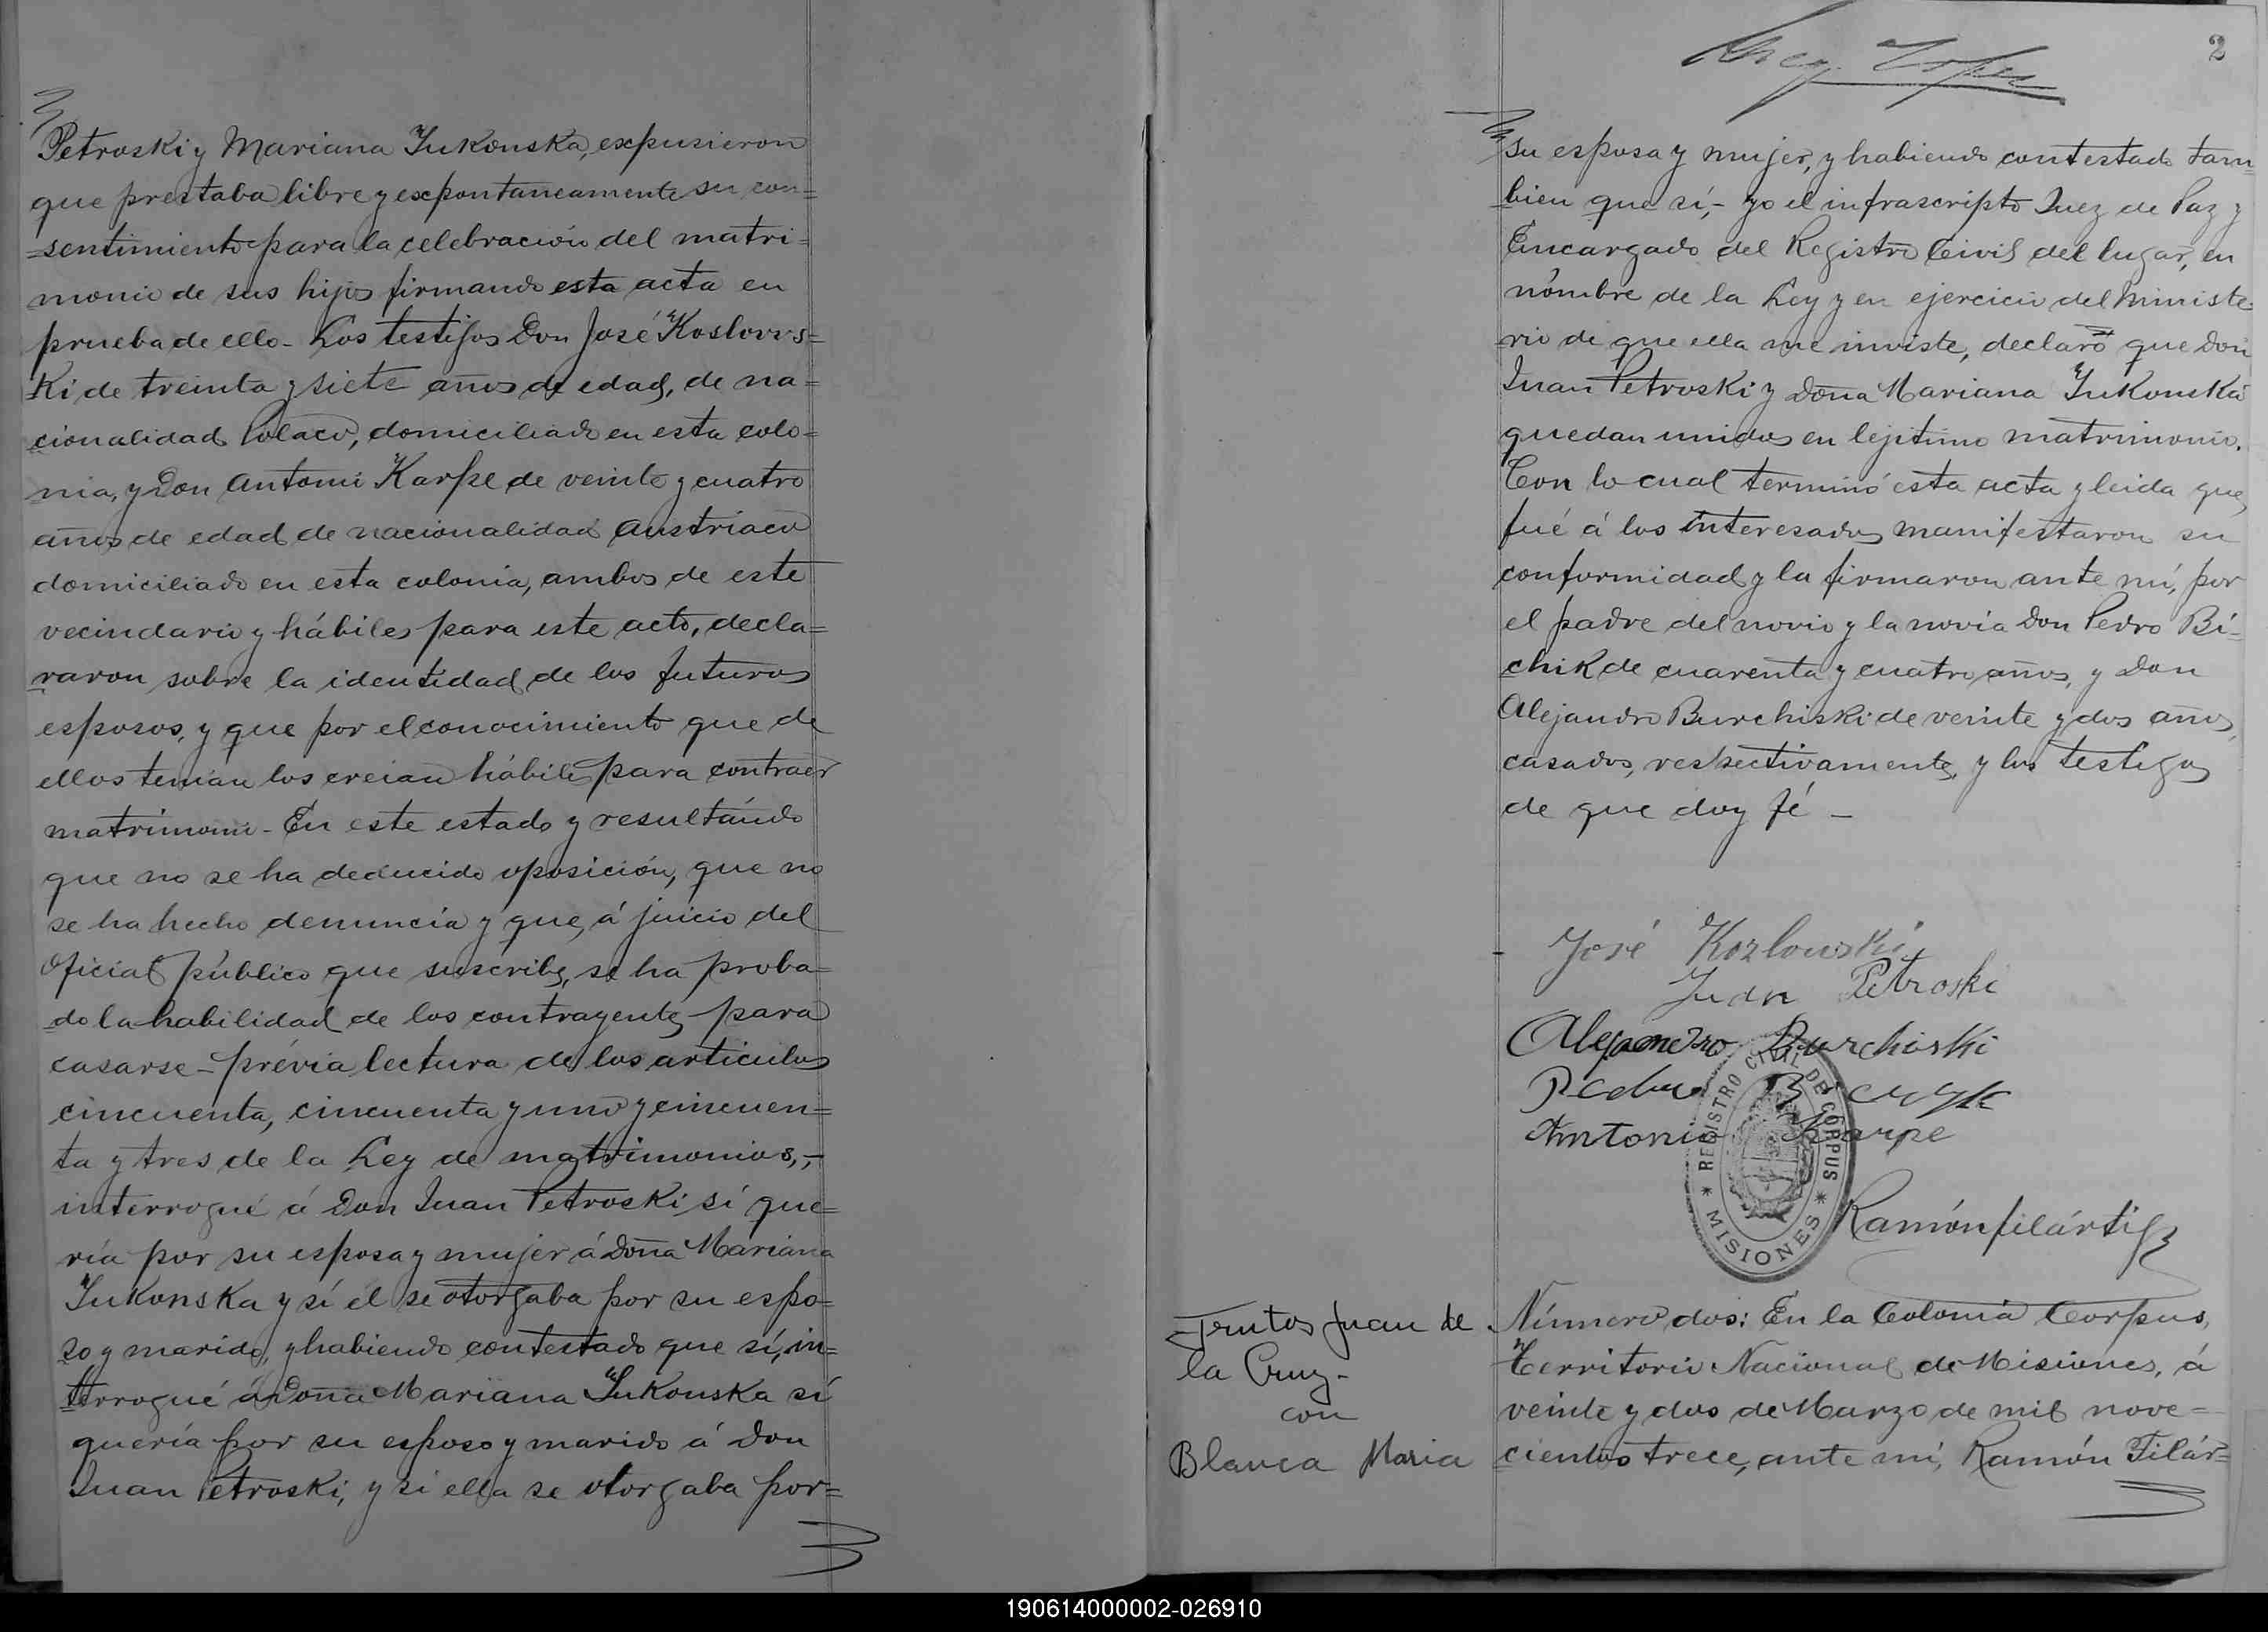 Petroski y Mariana Jukonska, expusieron
que prestaba libre y expontaneamente su con=
=sentimiento para la celebración del matri=
monio de sus hijos firmando esta acta en
prueba de ello - Los testijos Don José Koslows=
ki de treinta y siete años de edad, de na=
cionalidad Polaco, domiciliado en esta colo=
nia, y Don Antonio Karpe de veinte y cuatro
años de edad de nacionalidad Austriaco
domiciliado en esta colonia, ambos de este
vecindario y hábiles para este acto, decla=
raron sobre la identidad de los futuros
esposos, y que por el conocimiento que de
ellos tenian los creian hábiles para contraer
matrimonio - En este estado y resultándo
que no se ha deducido oposición, que no
se ha hecho denuncia y que, á juicio del
Oficial público que suscribe, se ha proba=
do la habilidad de los contrayentes para
casarse - prévia lectura de los articulos
cincuenta, cincuenta y uno y cincuen=
ta y tres de la Ley de matrimonios,-
interrogué á Don Juan Petroski sí que=
ría por su esposa y mujer á Doña Mariana
Jukonska y sí él se otorgaba por su espo=
so y marido, y habiendo contestado que sí, in=
terrogué á Doña Mariana Jukonska sí
quería por su esposo y marido á Don
Juan Petroski, y si ella se otorgaba por=
2
su esposa y mujer, y habiendo contestado tam=
bien que sí,- yo el infrascripto Juez de Paz y
Encargado del Registro Civil del lugar, en
nómbre de la Ley y en ejercicio del Ministe=
rio de que ella me inviste, declaro que Don
Juan Petroski y Doña Mariana Jukonska
quedan unidos en lejitimo matrimonio.
Con lo cual terminó esta acta y leida que,
fué á los interesados manifestaron su
conformidad y la firmaron ante mí, por
el padre del novio y la novia Don Pedro Bi=
chik de cuarenta y cuatro años, y Don
Alejandro Burchiski de veinte y dos años,
casados, respectivamente, y los testigos
de que doy fé -
José Kozlowski
Juan Petroski
Alejandro Burchiski
Pedro
Antonio Karpe
REGISTRO CIVIL DE CORPUS
* MISIONES *
Ramón Filártiga
Frutos Juan de
la Cruz-
con
Blanca Maria
Número dos: En la Colonia Corpus,
Territorio Nacional de Misiones, á
veinte y dos de Marzo de mil nove=
cientos trece, ante mí, Ramón Filár=
190614000002-026910